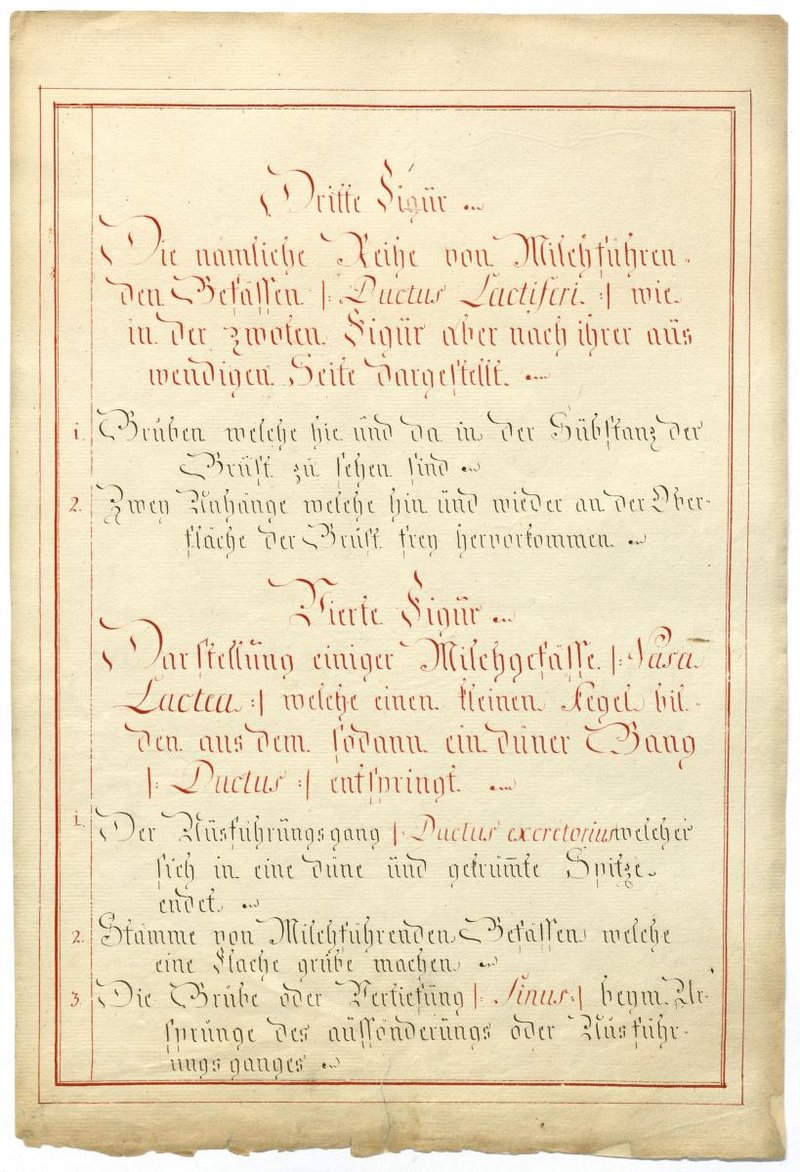 Dritte Figür
Die nämliche Reihe von Milchführen-
den Gefässen |: Ductus Lactiferi :| wie
in der zwoten Figür aber nach ihrer aüs
wendigen Seite dargestellt.
1. Grüben welche hie ünd da in der Sübstanz der
Brüst zü sehen sind
2. Zwey Anhänge welche hin ünd wieder an der Ober-
fläche der Brüst frey hervorkommen.
Vierte Figür
Darstellüng einiger Milchgefässe |: Vasa
Lactea :| welche einen kleinen Kegel bil-
den aus dem sodann ein düner Gang
|: Ductus :| entspringt.
1. Der Aüsführüngsgang |: Ductus excretorius welcher
sich in eine düne ünd gekrüm̅te Spitze
endet.
2. Stämme von Milchführenden Gefässen welche
eine Flache grübe machen.
3. Die Grübe oder Vertiefüng |: Sinus :| beym Ur-
sprunge des aüssönderüngs oder Aüsführ-
üngsganges